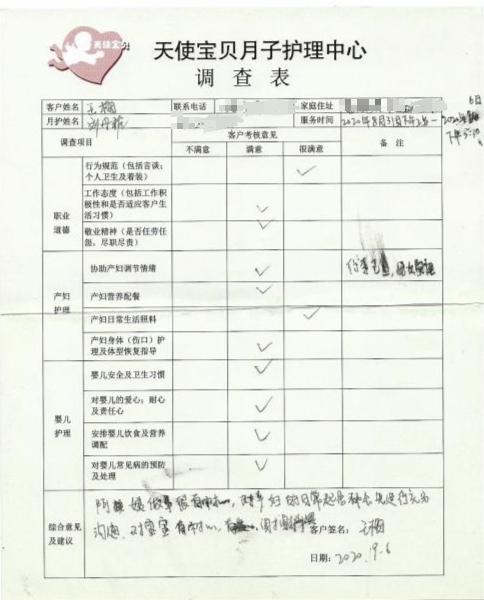 天使宝贝
天使宝贝月子护理中心
调查表
客户姓名 王梅 联系电话 家庭住址
月护姓名 服务时间 2020年8月31日下午2点-2020 6日下午5:10
调查项目 客户考核意见 备注
不满意 满意 很满意
职业道德
行为规范（包括言谈；个人卫生及着装） ✓
工作态度（包括工作积极性和是否适应客户生活习惯） ✓
敬业精神（是否任劳任怨，尽职尽责） ✓
产妇护理
协助产妇调节情绪 ✓
产妇营养配餐 ✓
产妇日常生活照料 ✓
产妇身体（伤口）护理及体型恢复指导 ✓
婴儿护理
婴儿安全及卫生习惯 ✓
对婴儿的爱心；耐心及责任心 ✓
安排婴儿饮食及营养调配 ✓
对婴儿常见病的预防及处理 ✓
综合意见及建议
阿姨做事很有耐心，对产妇的日常起居都会先进行充分
沟通，对宝宝有耐心，
客户签名：王梅
日期：2020.9.6